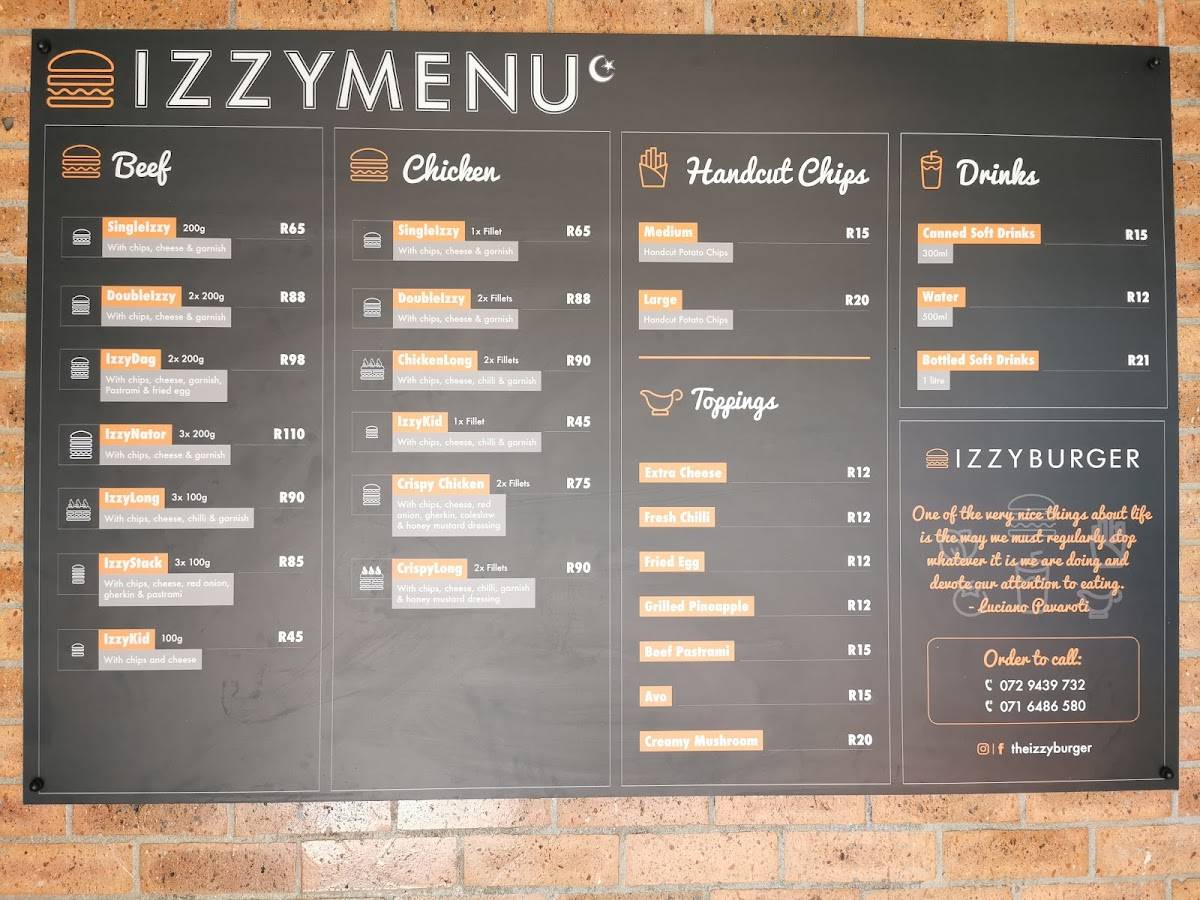 IZZYMENU
Beef
SingleIzzy 200g R65
With chips, cheese & garnish
DoubleIzzy 2x 200g R88
With chips, cheese & garnish
IzzyDag 2x 200g R98
With chips, cheese, garnish,
Pastrami & fried egg
IzzyNator 3x 200g R110
With chips, cheese & garnish
IzzyLong 3x 100g R90
With chips, cheese, chilli & garnish
IzzyStack 3x 100g R85
With chips, cheese, red onion,
gherkin & pastrami
IzzyKid 100g R45
With chips and cheese
Chicken
SingleIzzy 1x Fillet R65
With chips, cheese & garnish
DoubleIzzy 2x Fillets R88
With chips, cheese & garnish
ChickenLong 2x Fillets R90
With chips, cheese, chilli & garnish
IzzyKid 1x Fillet R45
With chips, cheese, chilli & garnish
Crispy Chicken 2x Fillets R75
With chips, cheese, red
onion, gherkin, coleslaw
& honey mustard dressing
CrispyLong 2x Fillets R90
With chips, cheese, chilli, garnish
& honey mustard dressing
Handcut Chips
Medium R15
Handcut Potato Chips
Large R20
Handcut Potato Chips
Toppings
Extra Cheese R12
Fresh Chilli R12
Fried Egg R12
Grilled Pineapple R12
Beef Pastrami R15
Avo R15
Creamy Mushroom R20
Drinks
Canned Soft Drinks R15
300ml
Water R12
500ml
Bottled Soft Drinks R21
1 litre
IZZYBURGER
One of the very nice things about life
is the way we must regularly stop
whatever it is we are doing and
devote our attention to eating.
- Luciano Pavaroti
Order to call:
072 9439 732
071 6486 580
theizzyburger